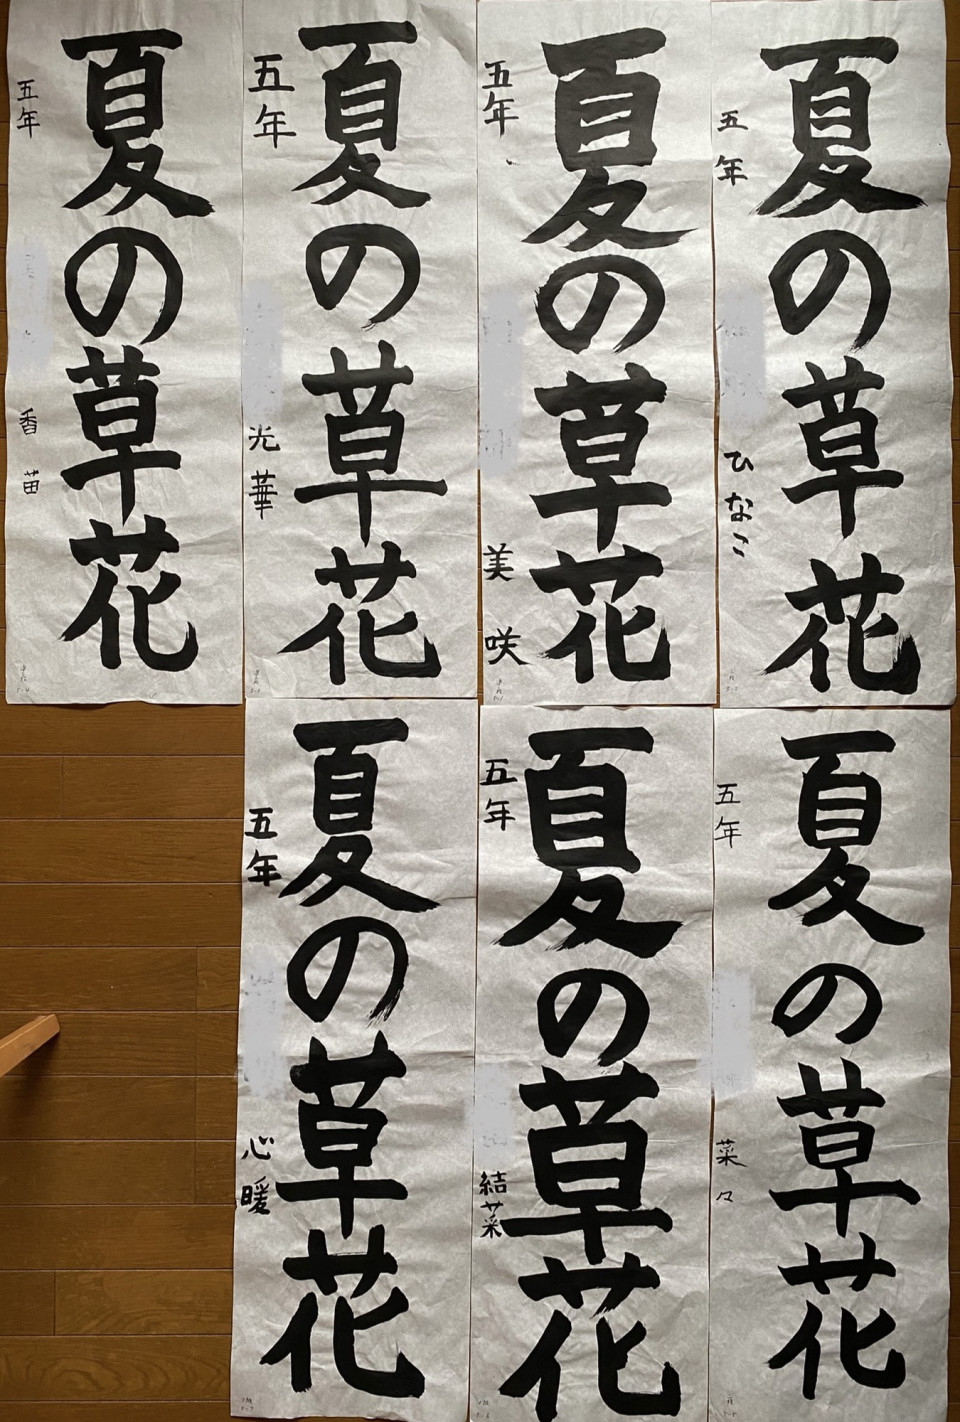 夏の草花
五年
ひなこ
夏の草花
五年
美咲
夏の草花
五年
光華
夏の草花
五年
香苗
夏の草花
五年
菜々
夏の草花
五年
結菜
夏の草花
五年
心暖